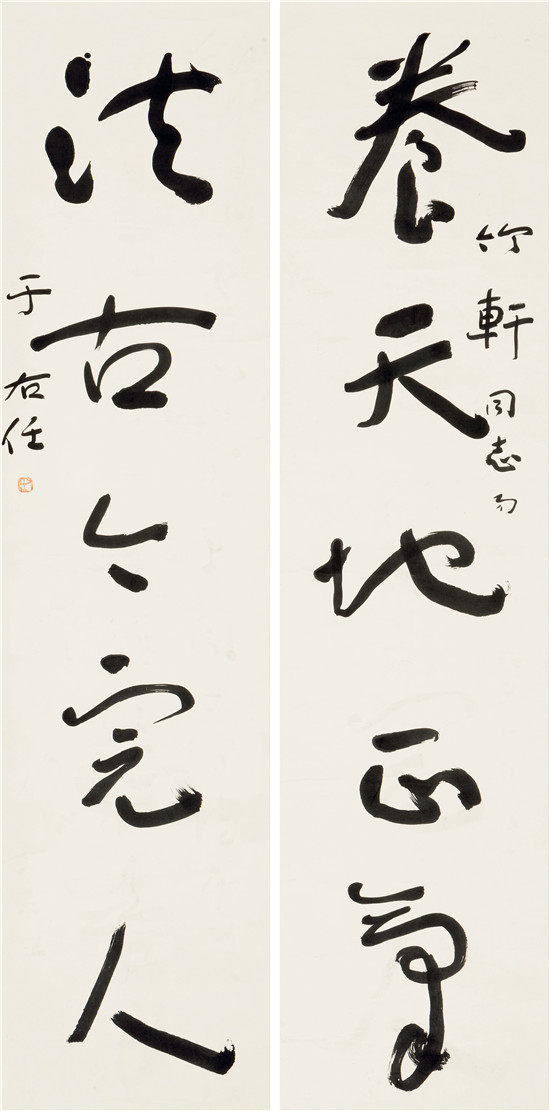 竹軒同志
養天地正氣
法古今完人
于右任